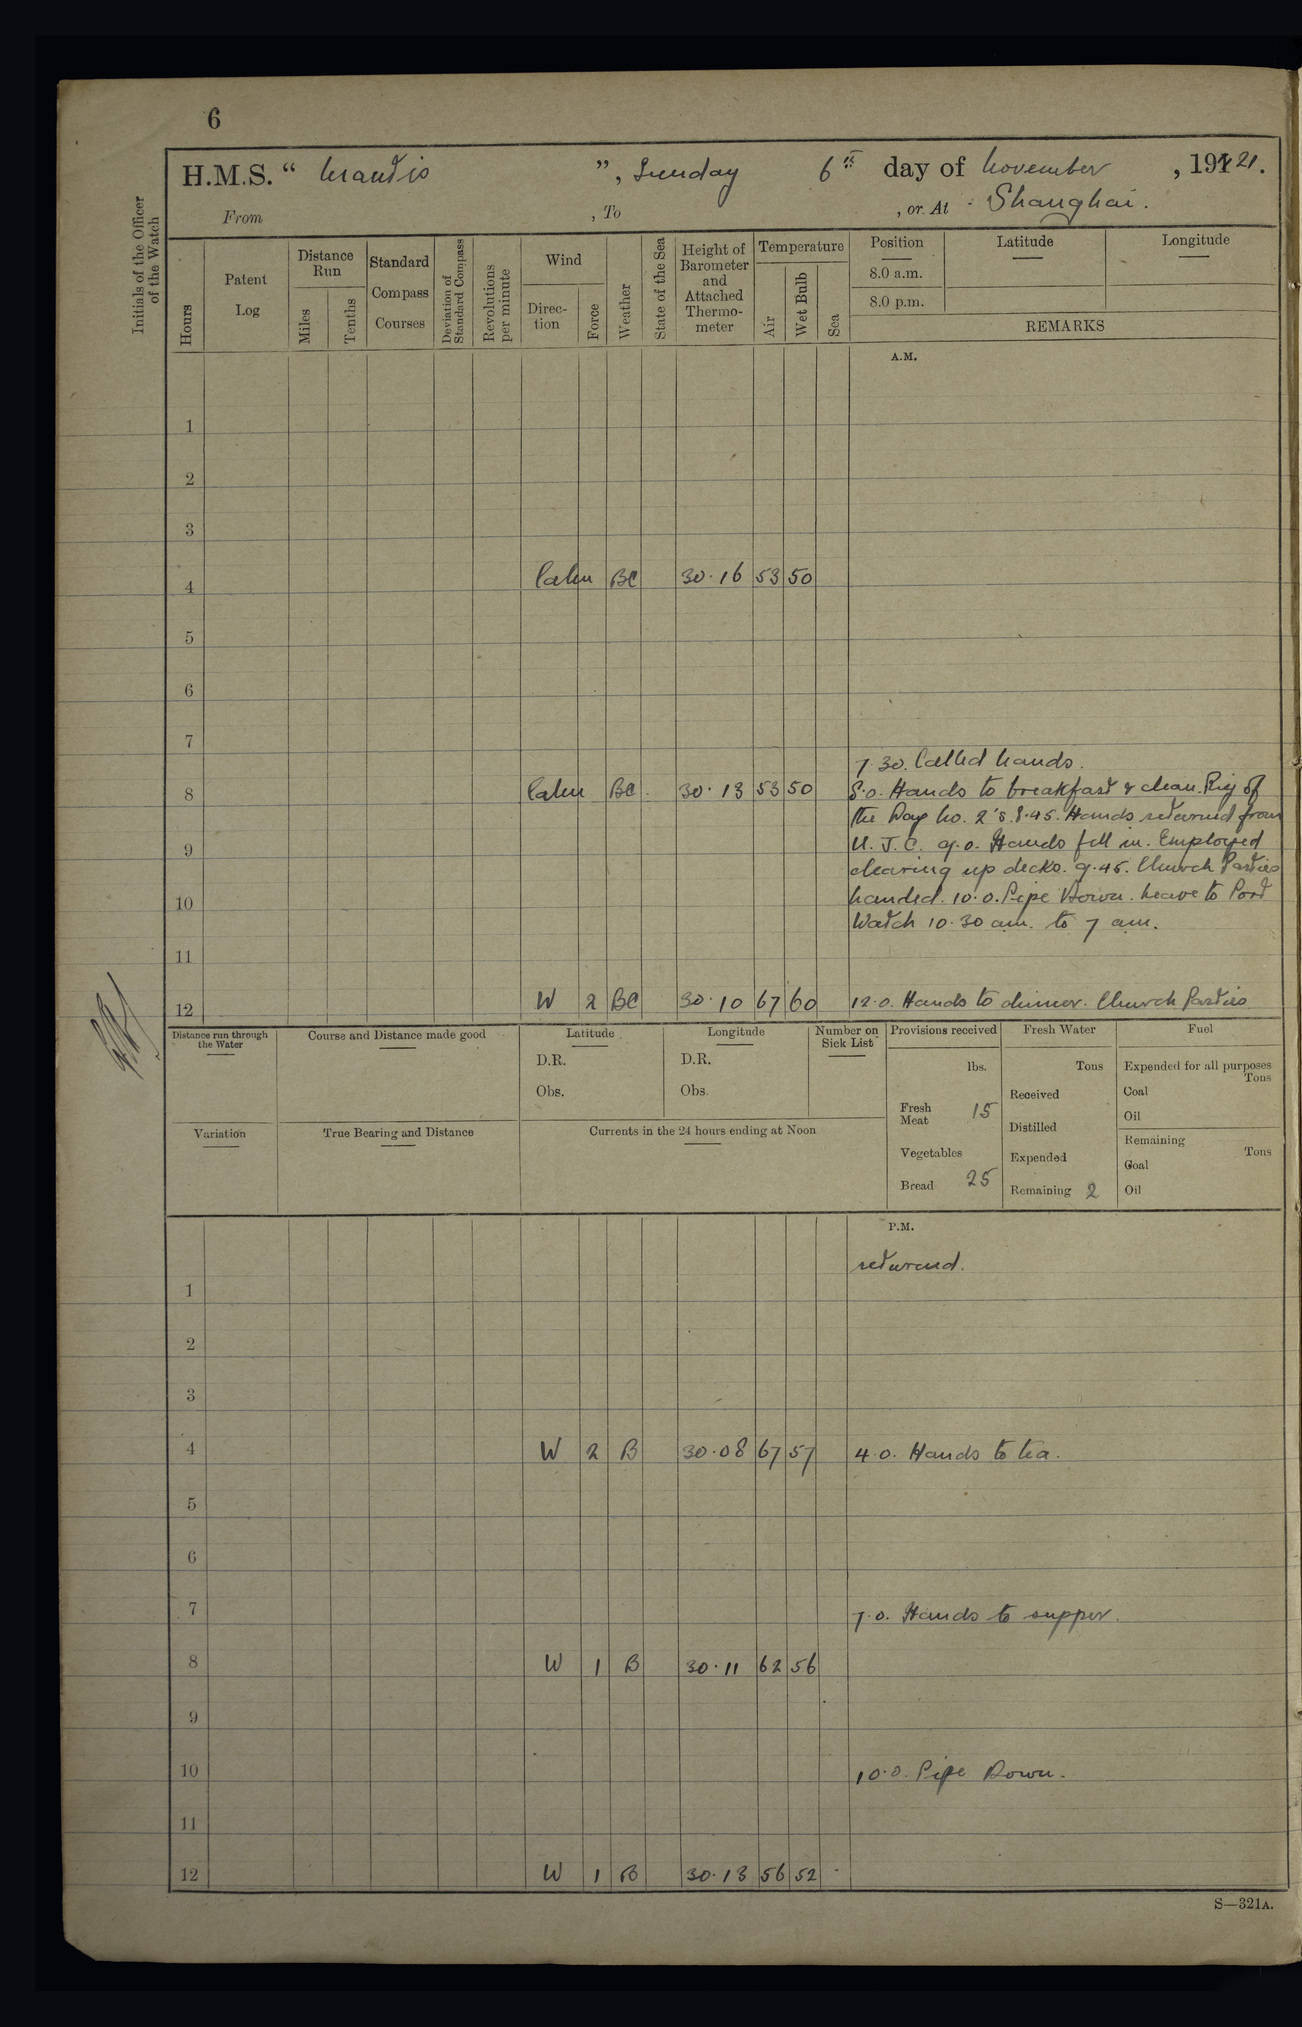 6
H.M.S. “ Mantis ”, Sunday 6th day of November , 1921.
From , To , or At Shanghai.
Initials of the Officer of the Watch
Hours
Patent Log
Distance Run
Miles
Tenths
Standard Compass Courses
Deviation of Standard Compass
Revolutions per minute
Wind
Direction
Force
Weather
State of the Sea
Height of Barometer and Attached Thermometer
Temperature
Air
Wet Bulb
Sea
Position
8.0 a.m.
8.0 p.m.
Latitude
Longitude
REMARKS
A.M.
1
2
3
4 Calm BC 30.16 53 50
5
6
7
7.30. Called hands.
8 Calm BC. 30.13 53 50 8.0. Hands to breakfast & clean. Rig of
the Day No. 2's. 8.45. Hands returned from
9 U. J. C. 9.0. Hands fell in. Employed
clearing up decks. 9.45. Church Parties
10 landed. 10.0. Pipe Down. Leave to Port
Watch 10.30 a.m. to 7 a.m.
11
12 W 2 BC 30.10 67 60 12.0. Hands to dinner. Church Parties
Distance run through the Water
Course and Distance made good
Latitude
D.R.
Obs.
Longitude
D.R.
Obs.
Number on Sick List
Provisions received
lbs.
Fresh Meat 15
Vegetables
Bread 25
Fresh Water
Tons
Received
Distilled
Expended
Remaining 2
Fuel
Expended for all purposes
Tons
Coal
Oil
Remaining
Tons
Coal
Oil
Variation
True Bearing and Distance
Currents in the 24 hours ending at Noon
P.M.
returned.
1
2
3
4 W 2 B 30.08 67 57 4.0. Hands to tea.
5
6
7 7.0. Hands to supper.
8 W 1 B 30.11 62 56
9
10 10.0. Pipe Down.
11
12 W 1 B 30.13 56 52
S—321A.